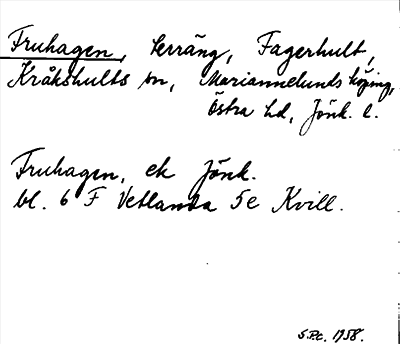 Fruhagen, terräng, Fagerhult,
Kråkshults sn, Mariannelunds köping,
Östra hd, Jönk. l.
Fruhagen, ek Jönk.
bl. 6 F Vetlanda 5e Kvill.
S.P.c. 1958.